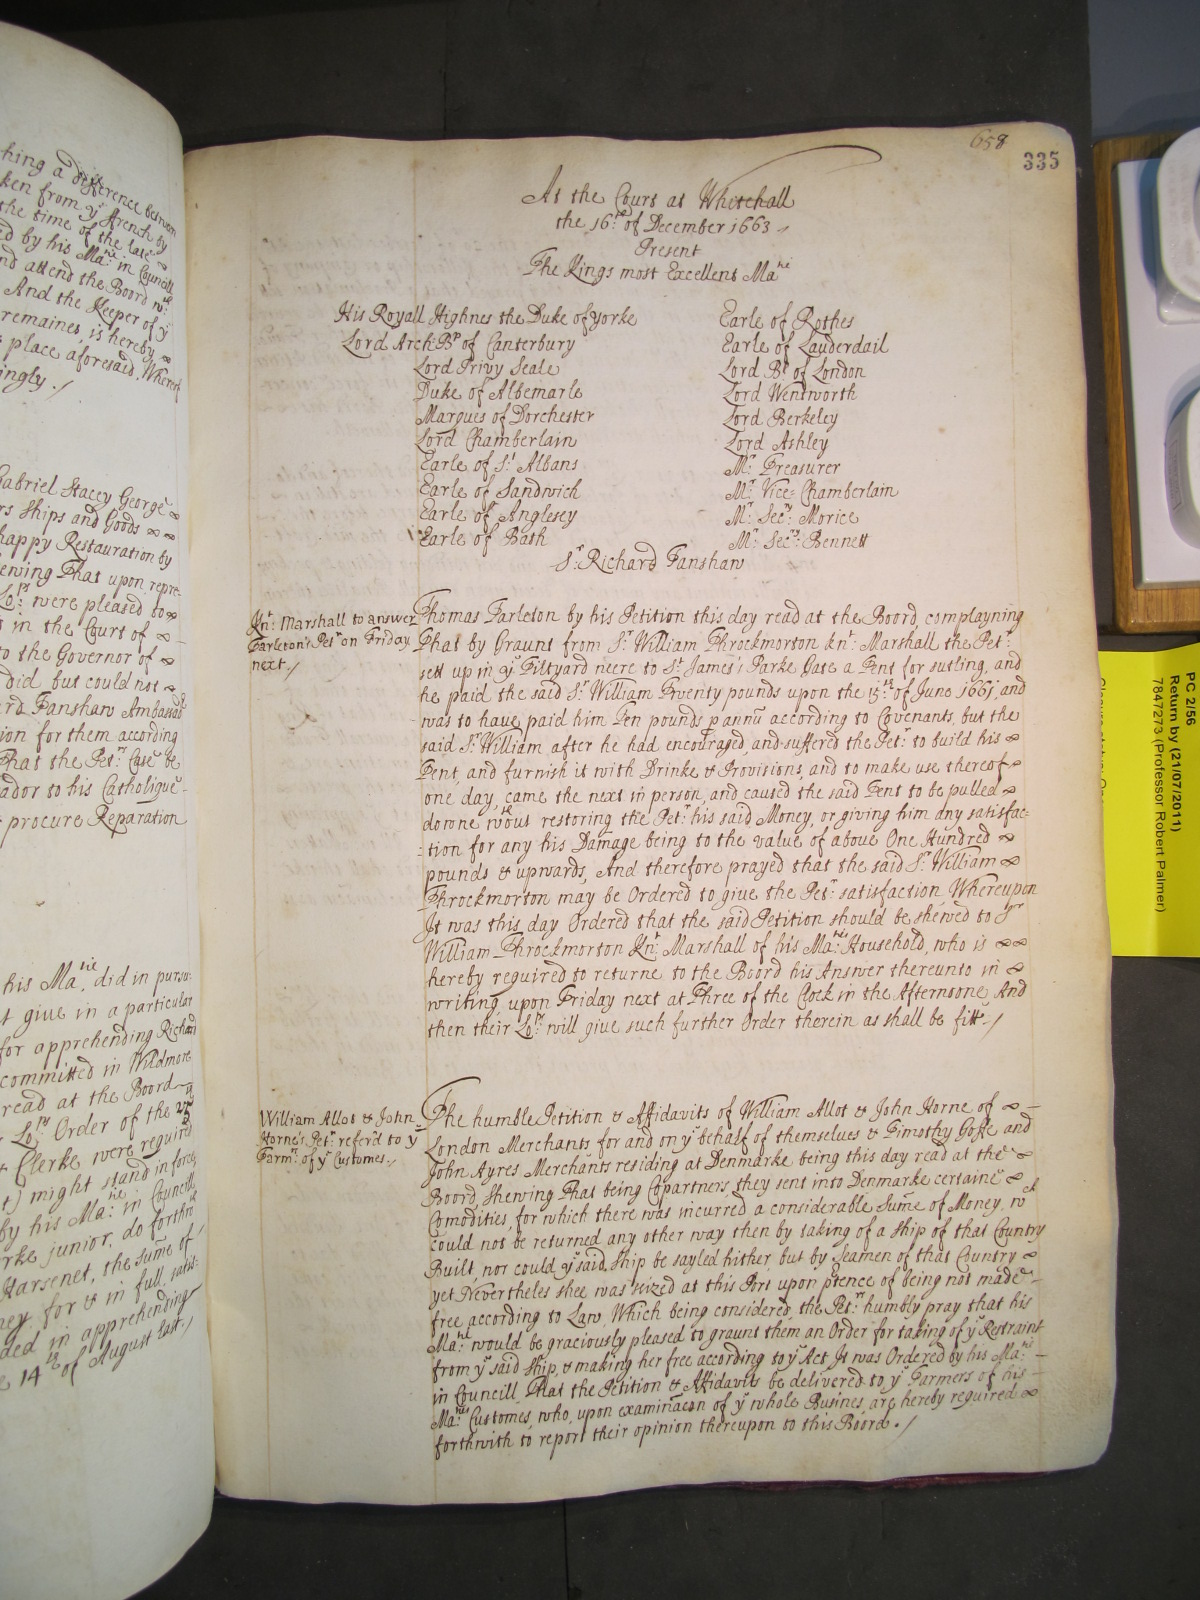 thing a difference between
ken from yᵉ French by
the time of the late
ed by his Maᵗⁱᵉ in Councill
nd attend the Board wᵗʰ
And the Keeper of yᵉ
remaines, is hereby
place aforesaid. Whereof
ingly./
Gabriel Stacey George
rs Ships and Goods
happy Restauration by
ewing That upon repre-
Loᵖˢ: were pleased to
t in the Court of
to the Governor of
did but could not
rd Fanshaw Ambassadʳ
ion for them according
That the Petʳˢ Case be
ador to his Catholique
procure Reparation
his Maᵗⁱᵉ, did in pursu-
t give in a particular
for apprehending Richard
committed in Wildmore
read at the Board
Loᵖˢ Order of the 25
Clerke were required
t) might stand in force
by his Maᵗⁱᵉ: in Councill
rke junior, do forthwᵗʰ
Harsenet, the sum̃e of
ney, for & in full satis-
ded in apprehending
e 14ᵗʰ of August last./
658
335
At the Court at Whitehall
the 16ᵗʰ: of December 1663
Present
The Kings most Excellent Maᵗⁱᵉ
His Royall Highnes the Duke of Yorke
Lord Arch:Bᵖ of Canterbury
Lord Privy Seale
Duke of Albemarle
Marques of Dorchester
Lord Chamberlain
Earle of Sᵗ Albans
Earle of Sandwich
Earle of Anglesey
Earle of Bath
Earle of Rothes
Earle of Lauderdail
Lord Bᵖ of London
Lord Wentworth
Lord Berkeley
Lord Ashley
Mʳ Treasurer
Mʳ Vice-Chamberlain
Mʳ: Secʳʸ: Morice
Mʳ: Secʳʸ: Bennett
Sʳ: Richard Fanshaw
Knᵗ: Marshall to answer
Tarleton's Petⁿ on Friday
next./
Thomas Tarleton by his Petition this day read at the Board, complayning
That by Graunt from Sʳ: William Throckmorton knᵗ: Marshall the Petʳ:
sett up in yᵉ Tiltyard neere to Sᵗ James's Parke Gate a Tent for sutling, and
he paid the said Sʳ William Twenty pounds upon the 15ᵗʰ of June 1661, and
was to have paid him Ten pounds p annũ according to Covenants, but the
said Sʳ: William after he had encouraged, and suffered the Petʳ: to build his
Tent, and furnish it with Drinke & Provisions, and to make use thereof
one day, came the next in person, and caused the said Tent to be pulled
downe wᵗʰout restoring the Petʳ: his said Money, or giving him any satisfac-
:tion for any his Damage being to the value of above One Hundred
pounds & upwards, And therefore prayed that the said Sʳ: William
Throckmorton may be Ordered to give the Petʳ: satisfaction, Whereupon
It was this day Ordered that the said Petition should be shewed to Sʳ
William Throckmorton Knᵗ: Marshall of his Maᵗⁱᵉˢ Household, who is
hereby required to returne to the Board his Answer thereunto in
writing, upon Friday next at Three of the Clock in the Afternoone, And
then their Loᵖˢ: will give such further Order therein as shall be fitt./
William Allot & John
Horne's Petⁿ: refer'd to yᵉ
Farmʳˢ: of yᵉ Customes./
The humble Petition & Affidavits of William Allot & John Horne of
London Merchants for and on yᵉ behalf of themselves & Timothy Goffe and
John Ayres Merchants residing at Denmarke being this day read at the
Board, Shewing That being Copartners, they sent into Denmarke certaine
Com̃odities, for which there was incurred a considerable Sum̃e of Money, wᶜʰ
could not be returned any other way then by taking of a Ship of that Country
Built, nor could yᵉ said Ship be sayled hither, but by Seamen of that Country
yet Nevertheles shee was seized at this Port upon p̃tence of being not made
free according to Law, Which being considered, the Petʳˢ humbly pray that his
Maᵗⁱᵉ would be graciously pleased to graunt them an Order for taking of yᵉ Restraint
from yᵉ said Ship, & making her free according to yᵉ Act It was Ordered by his Maᵗⁱᵉ:
in Councill That the Petition & Affidavits be delivered to yᵉ Farmers of his
Maᵗⁱᵉˢ Customes, who, upon examinac͠on of yᵉ whole Busines, are hereby required
forthwith to report their opinion thereupon to this Board./
PC 2/56
Return by (21/07/2011)
7847273 (Professor Robert Palmer)